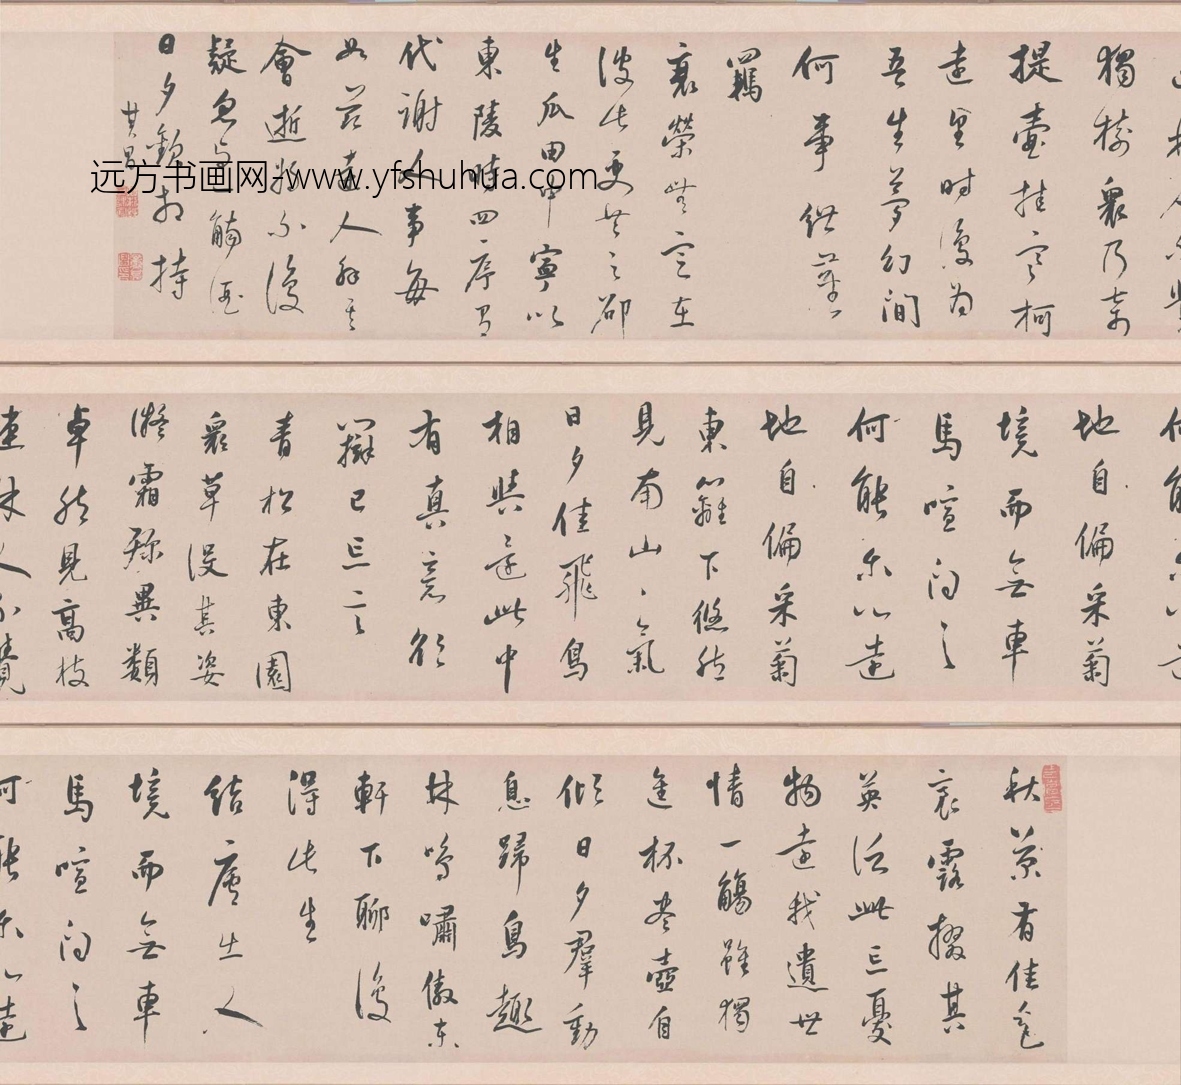 秋菊有佳色
裛露掇其
英泛此忘憂
物遠我遺世
情一觴雖獨
進杯盡壺自
傾日夕羣動
息歸鳥趣
林鳴嘯傲東
軒下聊復
得此生
結廬在人
境而無車
馬喧问之
何能尔心遠
何能尔心遠
地自偏采菊
境而無車
馬喧问之
何能尔心遠
地自偏采菊
東籬下悠然
見南山山氣
日夕佳飛鳥
相與還此中
有真意欲
辯已忘言
青松在東園
眾草沒其姿
凝霜殄異類
卓然見高枝
連林人不覺
連林人不覺
獨樹眾乃奇
提壺挂寒柯
遠望時復為
吾生夢幻間
何事紲塵
羈
衰榮無定在
彼此更共之邵
生瓜田中寧似
東陵時四序有
代謝人事每
如茲達人解其
會逝將不復
疑忽與一觴酒
日夕歡相持
其昌
远方书画网-www.yfshuhua.com